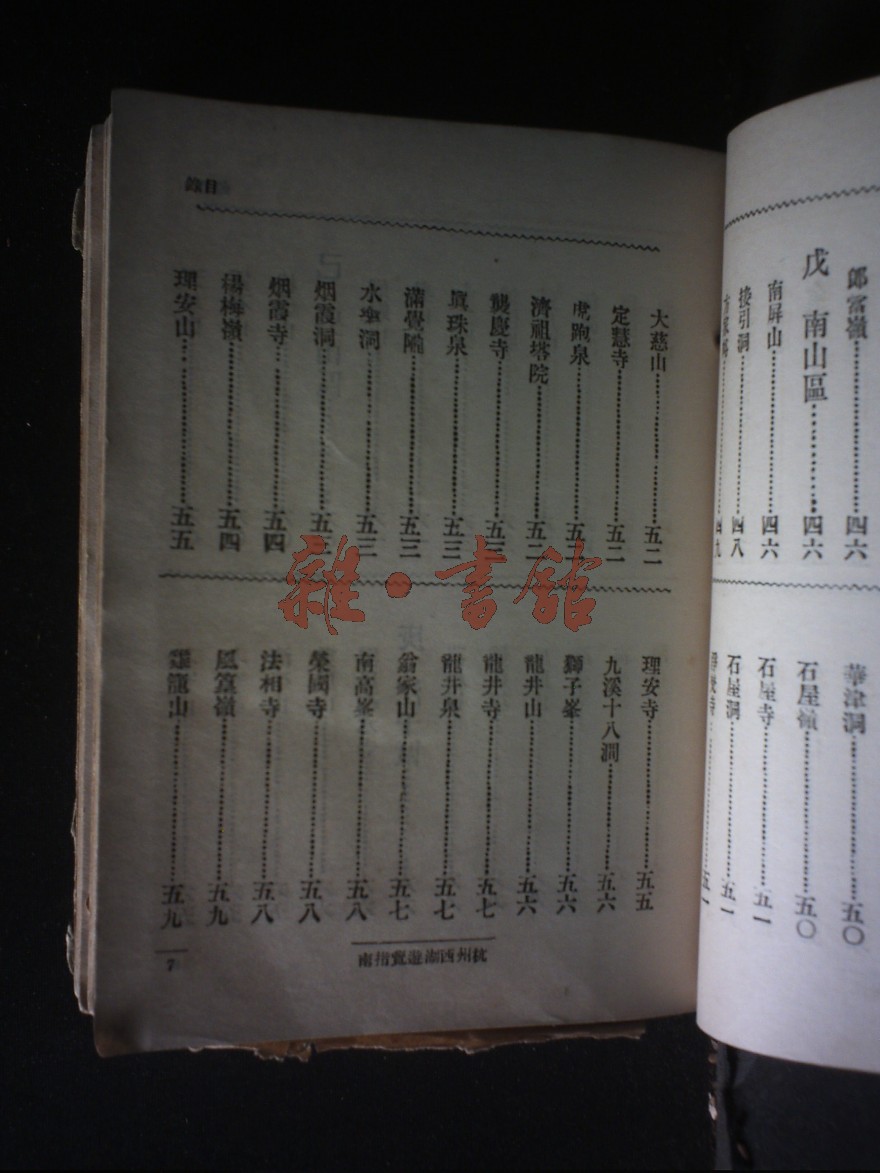 郎當嶺……四六
戊 南山區……四六
南屏山……四六
接引洞……四八
四九
華津洞……五〇
石屋嶺……五〇
石屋寺……五一
石屋洞……五一
目錄
大慈山……五二
定慧寺……五二
虎跑泉……五二
濟祖塔院……五二
龔慶寺……五三
眞珠泉……五三
滿覺隴……五三
水樂洞……五三
烟霞洞……五三
烟霞寺……五四
楊梅嶺……五四
理安山……五五
理安寺……五五
九溪十八澗……五六
獅子峯……五六
龍井山……五六
龍井寺……五七
龍井泉……五七
翁家山……五七
南高峯……五八
榮國寺……五八
法相寺……五八
風篁嶺……五九
雞籠山……五九
杭州西湖遊覽指南
7
雜·書館